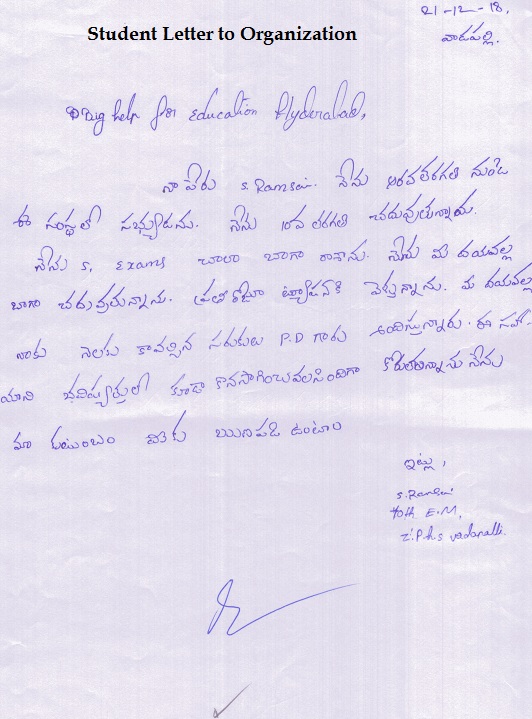 Student Letter to Organization
21-12-18.
వాడపల్లి.
Big help for Education Hyderabad,
నా పేరు S. Ramsai. నేను ఆరవతరగతి నుండి
ఈ సంస్థలో సభ్యుడును. నేను 10వ తరగతి చదువుతున్నాను.
నేను S, Exams చాలా బాగా రాశాను. నేను మీ దయవల్ల
బాగా చదువుతున్నాను. ప్రతిరోజూ ట్యూషన్‌కి వెళ్తున్నాను. మీ దయవల్ల
నాకు నెలకు కావల్సిన సరుకులు P.D గారు అందిస్తున్నారు. ఈ సహా-
యాని భవిష్యత్తులో కూడా కొనసాగించవలసిందిగా కోరుతున్నాను నేను
మా కుటుంబం మీకు ఋణపడి ఉంటాం
ఇట్లు,
S. Ramsai
10th E.M,
Z.P.H.S Vadapalli.